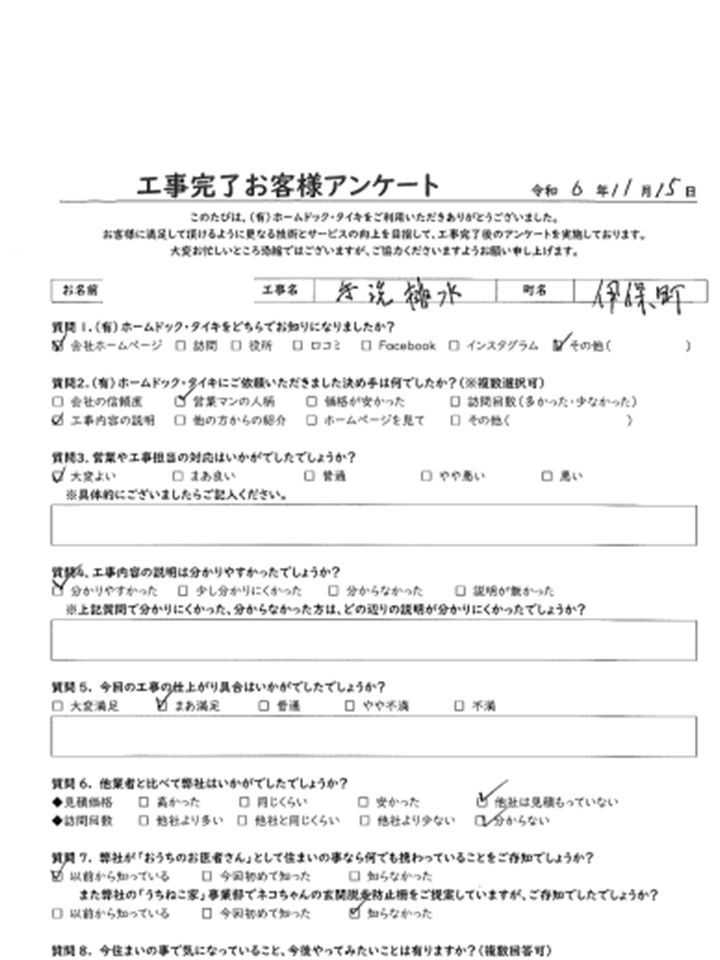 工事完了お客様アンケート 令和 6 年 11 月 15 日
このたびは、(有)ホームドック・タイキをご利用いただきありがとうございました。
お客様に満足して頂けるように更なる技術とサービスの向上を目指して、工事完了後のアンケートを実施しております。
大変お忙しいところ恐縮ではございますが、ご協力くださいますようお願い申し上げます。
お名前 工事名 手洗 水 町名 伊保町
質問1.(有)ホームドック・タイキをどちらでお知りになりましたか?
☑ 会社ホームページ □ 訪問 □ 役所 □ 口コミ □ Facebook □ インスタグラム ☑ その他( )
質問2.(有)ホームドック・タイキにご依頼いただきました決め手は何でしたか?(※複数選択可)
□ 会社の信頼度 ☑ 営業マンの人柄 □ 価格が安かった □ 訪問回数(多かった・少なかった)
☑ 工事内容の説明 □ 他の方からの紹介 □ ホームページを見て □ その他( )
質問3.営業や工事担当の対応はいかがでしたでしょうか?
☑ 大変よい □ まあ良い □ 普通 □ やや悪い □ 悪い
※具体的にございましたらご記入ください。
質問4.工事内容の説明は分かりやすかったでしょうか?
☑ 分かりやすかった □ 少し分かりにくかった □ 分からなかった □ 説明が無かった
※上記質問で分かりにくかった、分からなかった方は、どの辺りの説明が分かりにくかったでしょうか?
質問5.今回の工事の仕上がり具合はいかがでしたでしょうか?
□ 大変満足 ☑ まあ満足 □ 普通 □ やや不満 □ 不満
質問6.他業者と比べて弊社はいかがでしたでしょうか?
◆見積価格 □ 高かった □ 同じくらい □ 安かった ☑ 他社は見積もっていない
◆訪問回数 □ 他社より多い □ 他社と同じくらい □ 他社より少ない ☑ 分からない
質問7.弊社が「おうちのお医者さん」として住まいの事なら何でも携わっていることをご存知でしょうか?
☑ 以前から知っている □ 今回初めて知った □ 知らなかった
また弊社の「うちねこ家」事業部でネコちゃんの玄関脱走防止柵をご提案していますが、ご存知でしたでしょうか?
□ 以前から知っている □ 今回初めて知った ☑ 知らなかった
質問8.今住まいの事で気になっていること、今後やってみたいことは有りますか?(複数回答可)